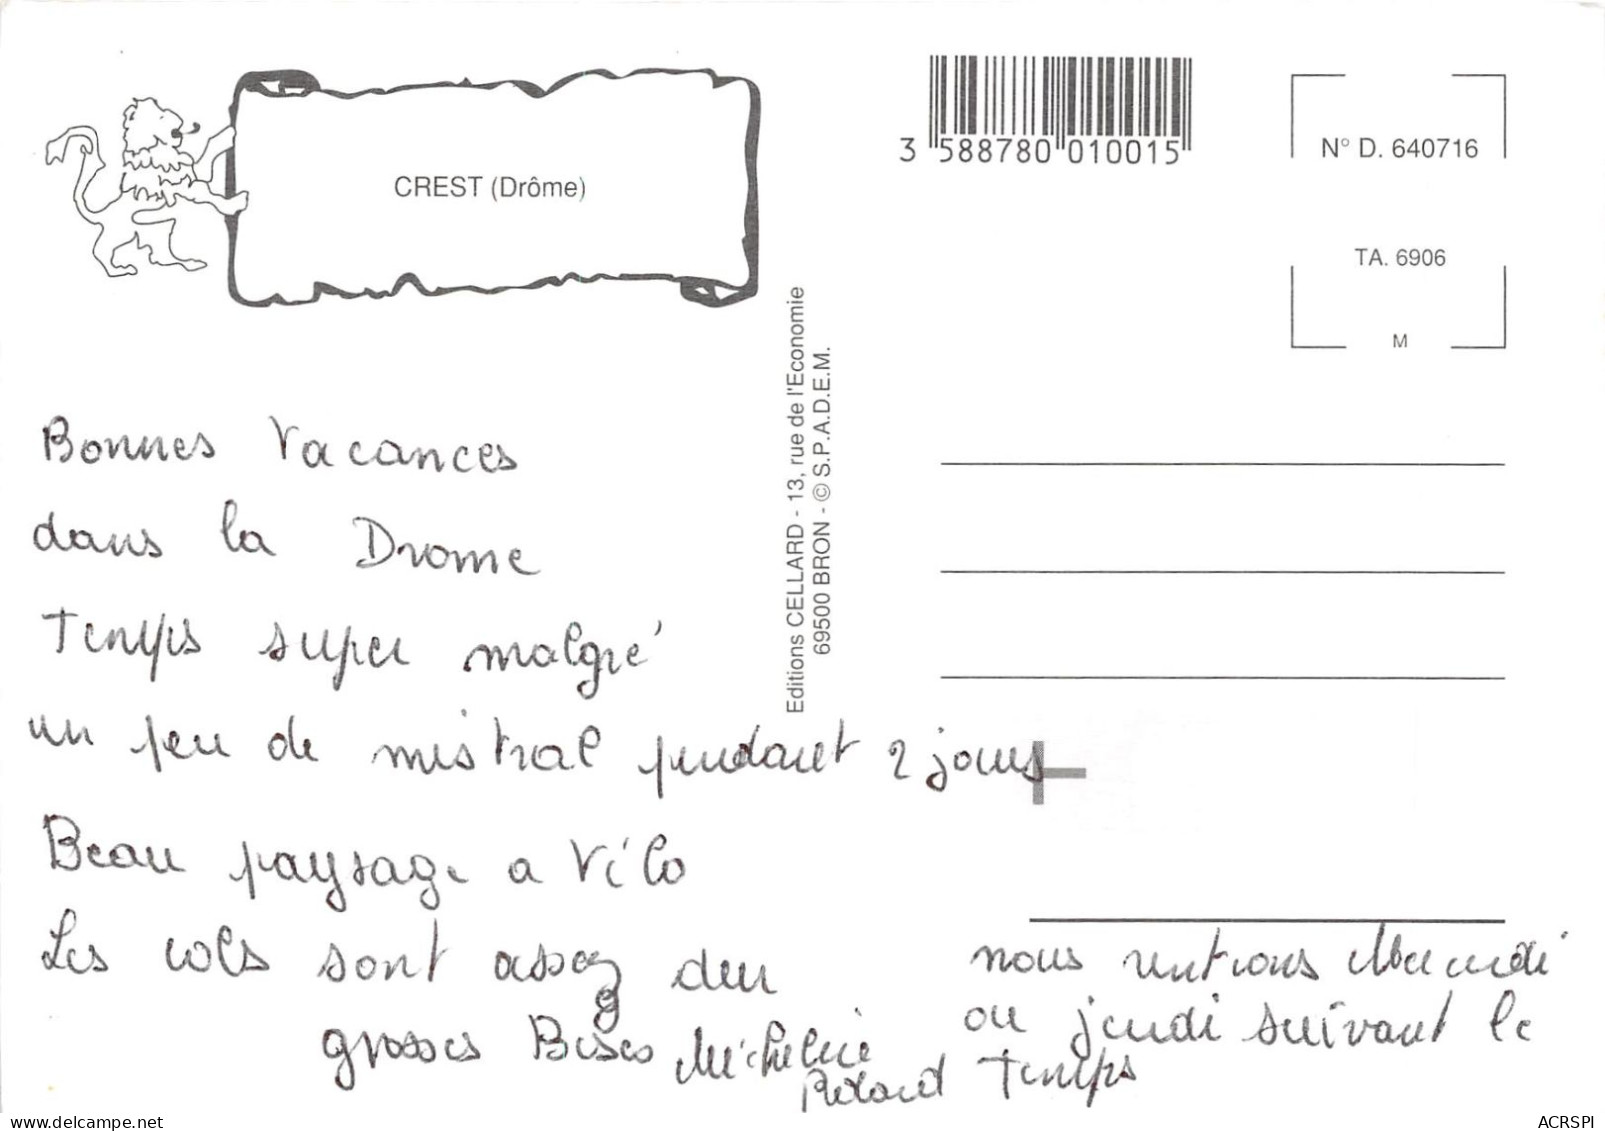 CREST (Drôme)
3 588780 010015
N° D. 640716
TA. 6906
M
Editions CELLARD - 13, rue de l'Economie
69500 BRON - © S.P.A.D.E.M.
Bonnes Vacances
dans la Drome
Temps super malgré
un peu de mistral pendant 2 jours
Beau paysage a Vélo
Les cols sont assez dur
grosses Bises Micheline
nous rentrons Mercredi
ou jeudi suivant le
Temps
ACRSPI